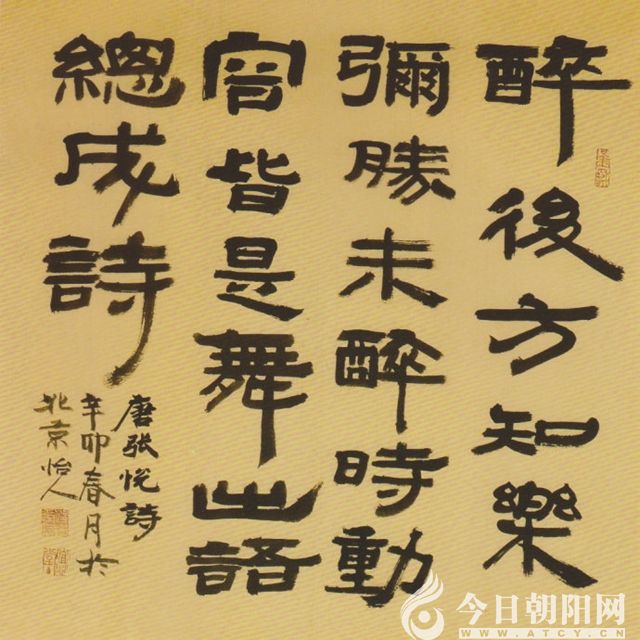 醉後方知樂
彌勝未醉時動
容皆是舞出語
總成詩
唐张悦詩
辛卯春月於
北京怡人
今日朝阳网
WWW.ATCY.CN